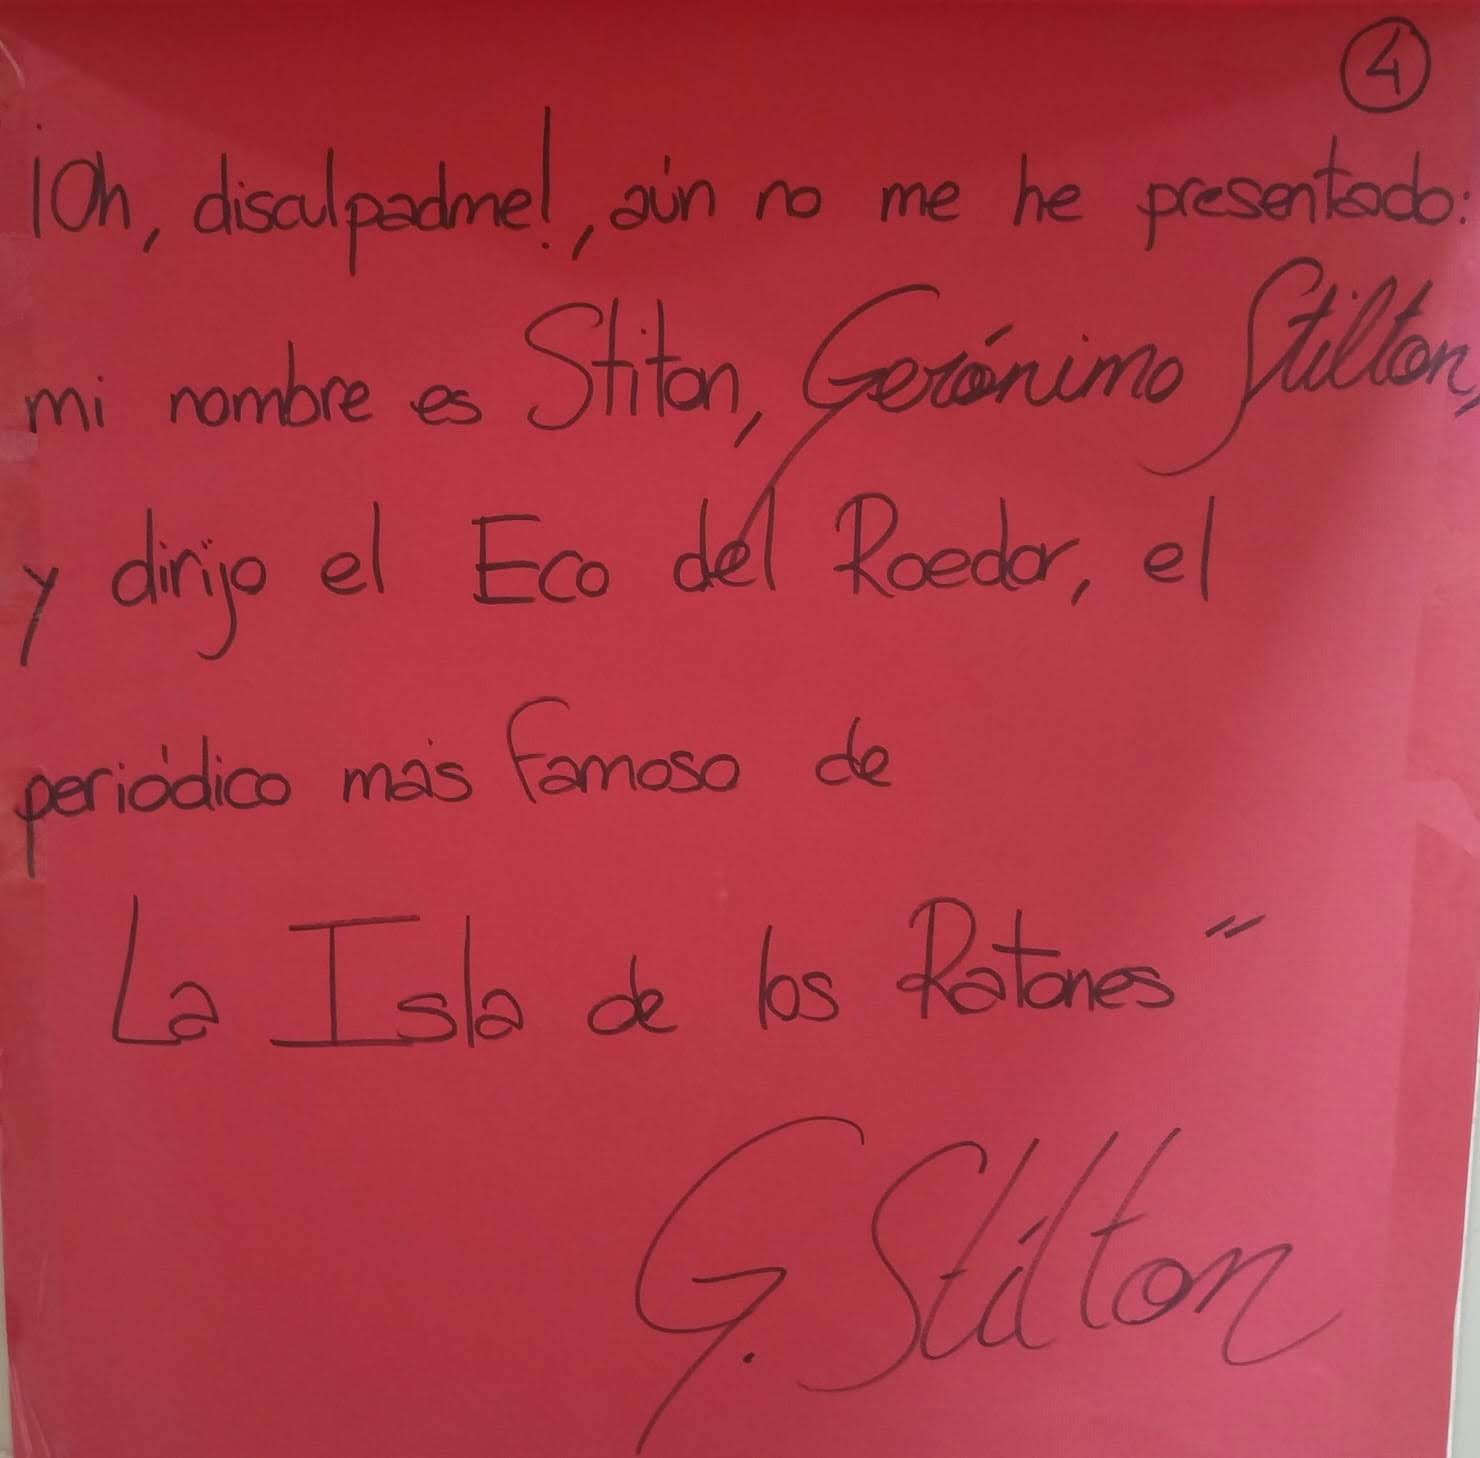 4
¡Oh, disculpadme!, aún no me he presentado:
mi nombre es Stiton, Gerónimo Stilton,
y dirijo el Eco del Roedor, el
periódico más famoso de
La Isla de los Ratones"
G. Stilton